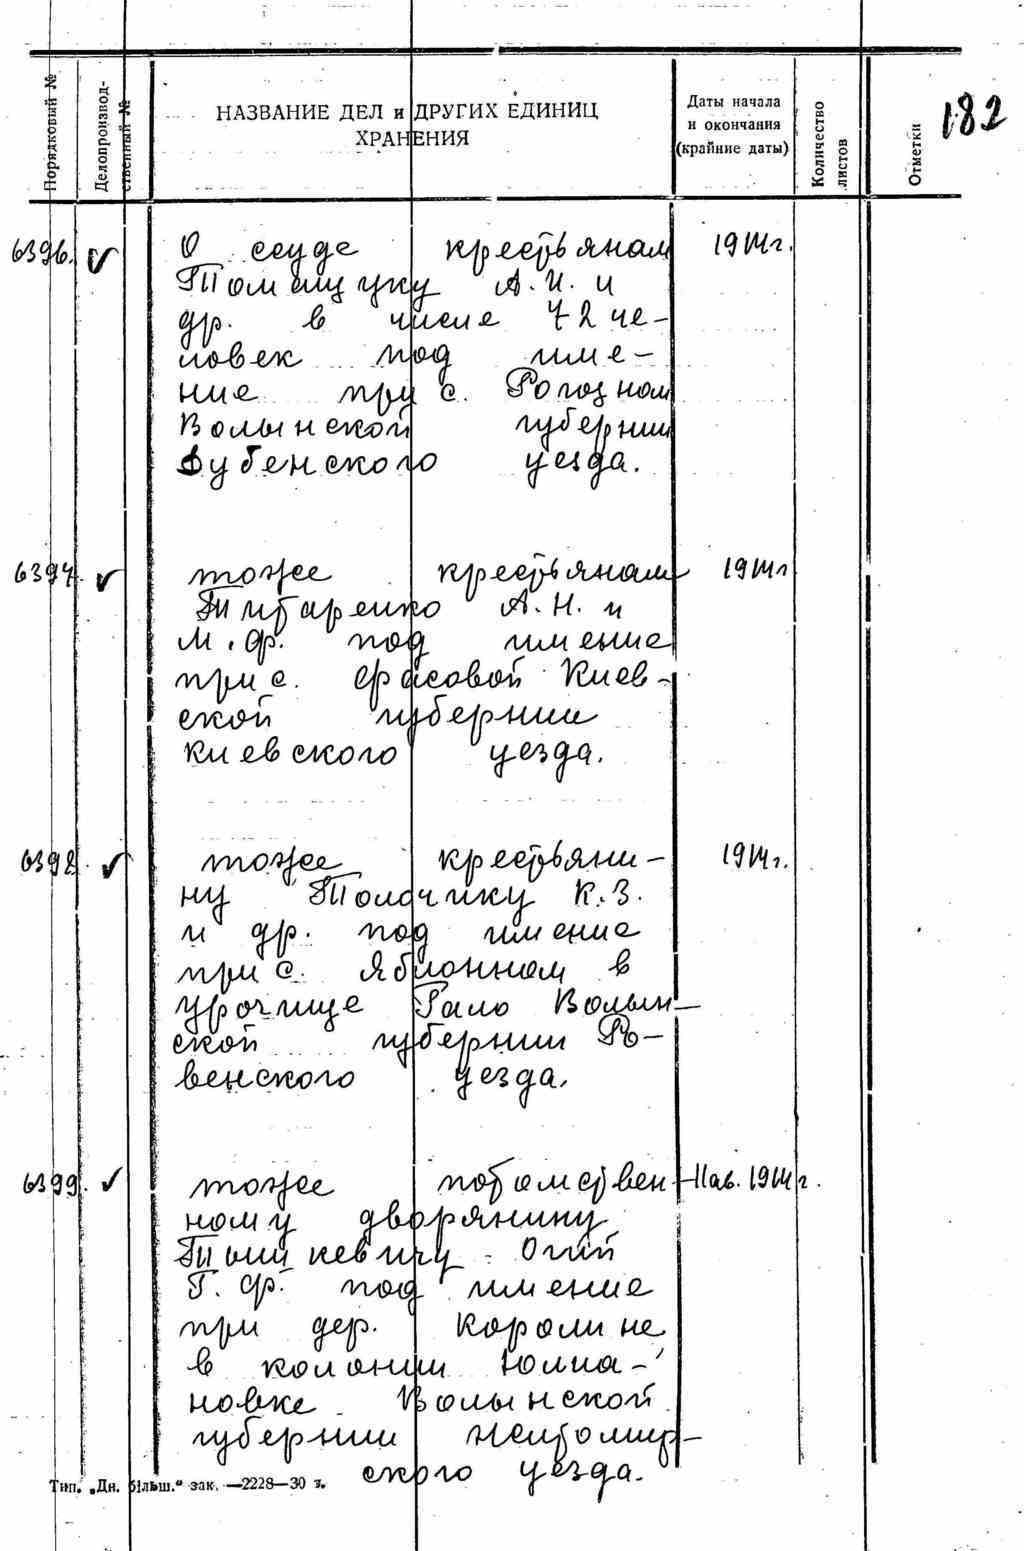 182
Порядковый №
Делопроизвод-
ственный №
НАЗВАНИЕ ДЕЛ и ДРУГИХ ЕДИНИЦ
ХРАНЕНИЯ
Даты начала
и окончания
(крайние даты)
Количество
листов
Отметки
6396. О ссуде крестьянам 1914г.
Томащуку А.И. и
др. в числе 72 че-
ловек под име-
ние при с. Рогозном
Волынской губернии
Дубенского уезда.
6397. тоже крестьянам 1914г
Титаренко А.Н. и
М.Ф. под имение
при с. Фасовой Киев-
ской губернии
Киевского уезда.
6398. тоже крестьяни- 1914г.
ну Толочику К.З.
и др. под имение
при с. Яблонном в
урочище Гало Волын-
ской губернии Ро-
венского уезда.
6399. тоже потомствен- 11ав. 1914г.
ному дворянину
Тышкевичу - Огий
Г. Ф. под имение
при дер. Королине
в колонии Юлиа-
новке Волынской
губернии Житомир-
ского уезда.
Тип. „Дн. більш." зак. —2228—30 г.